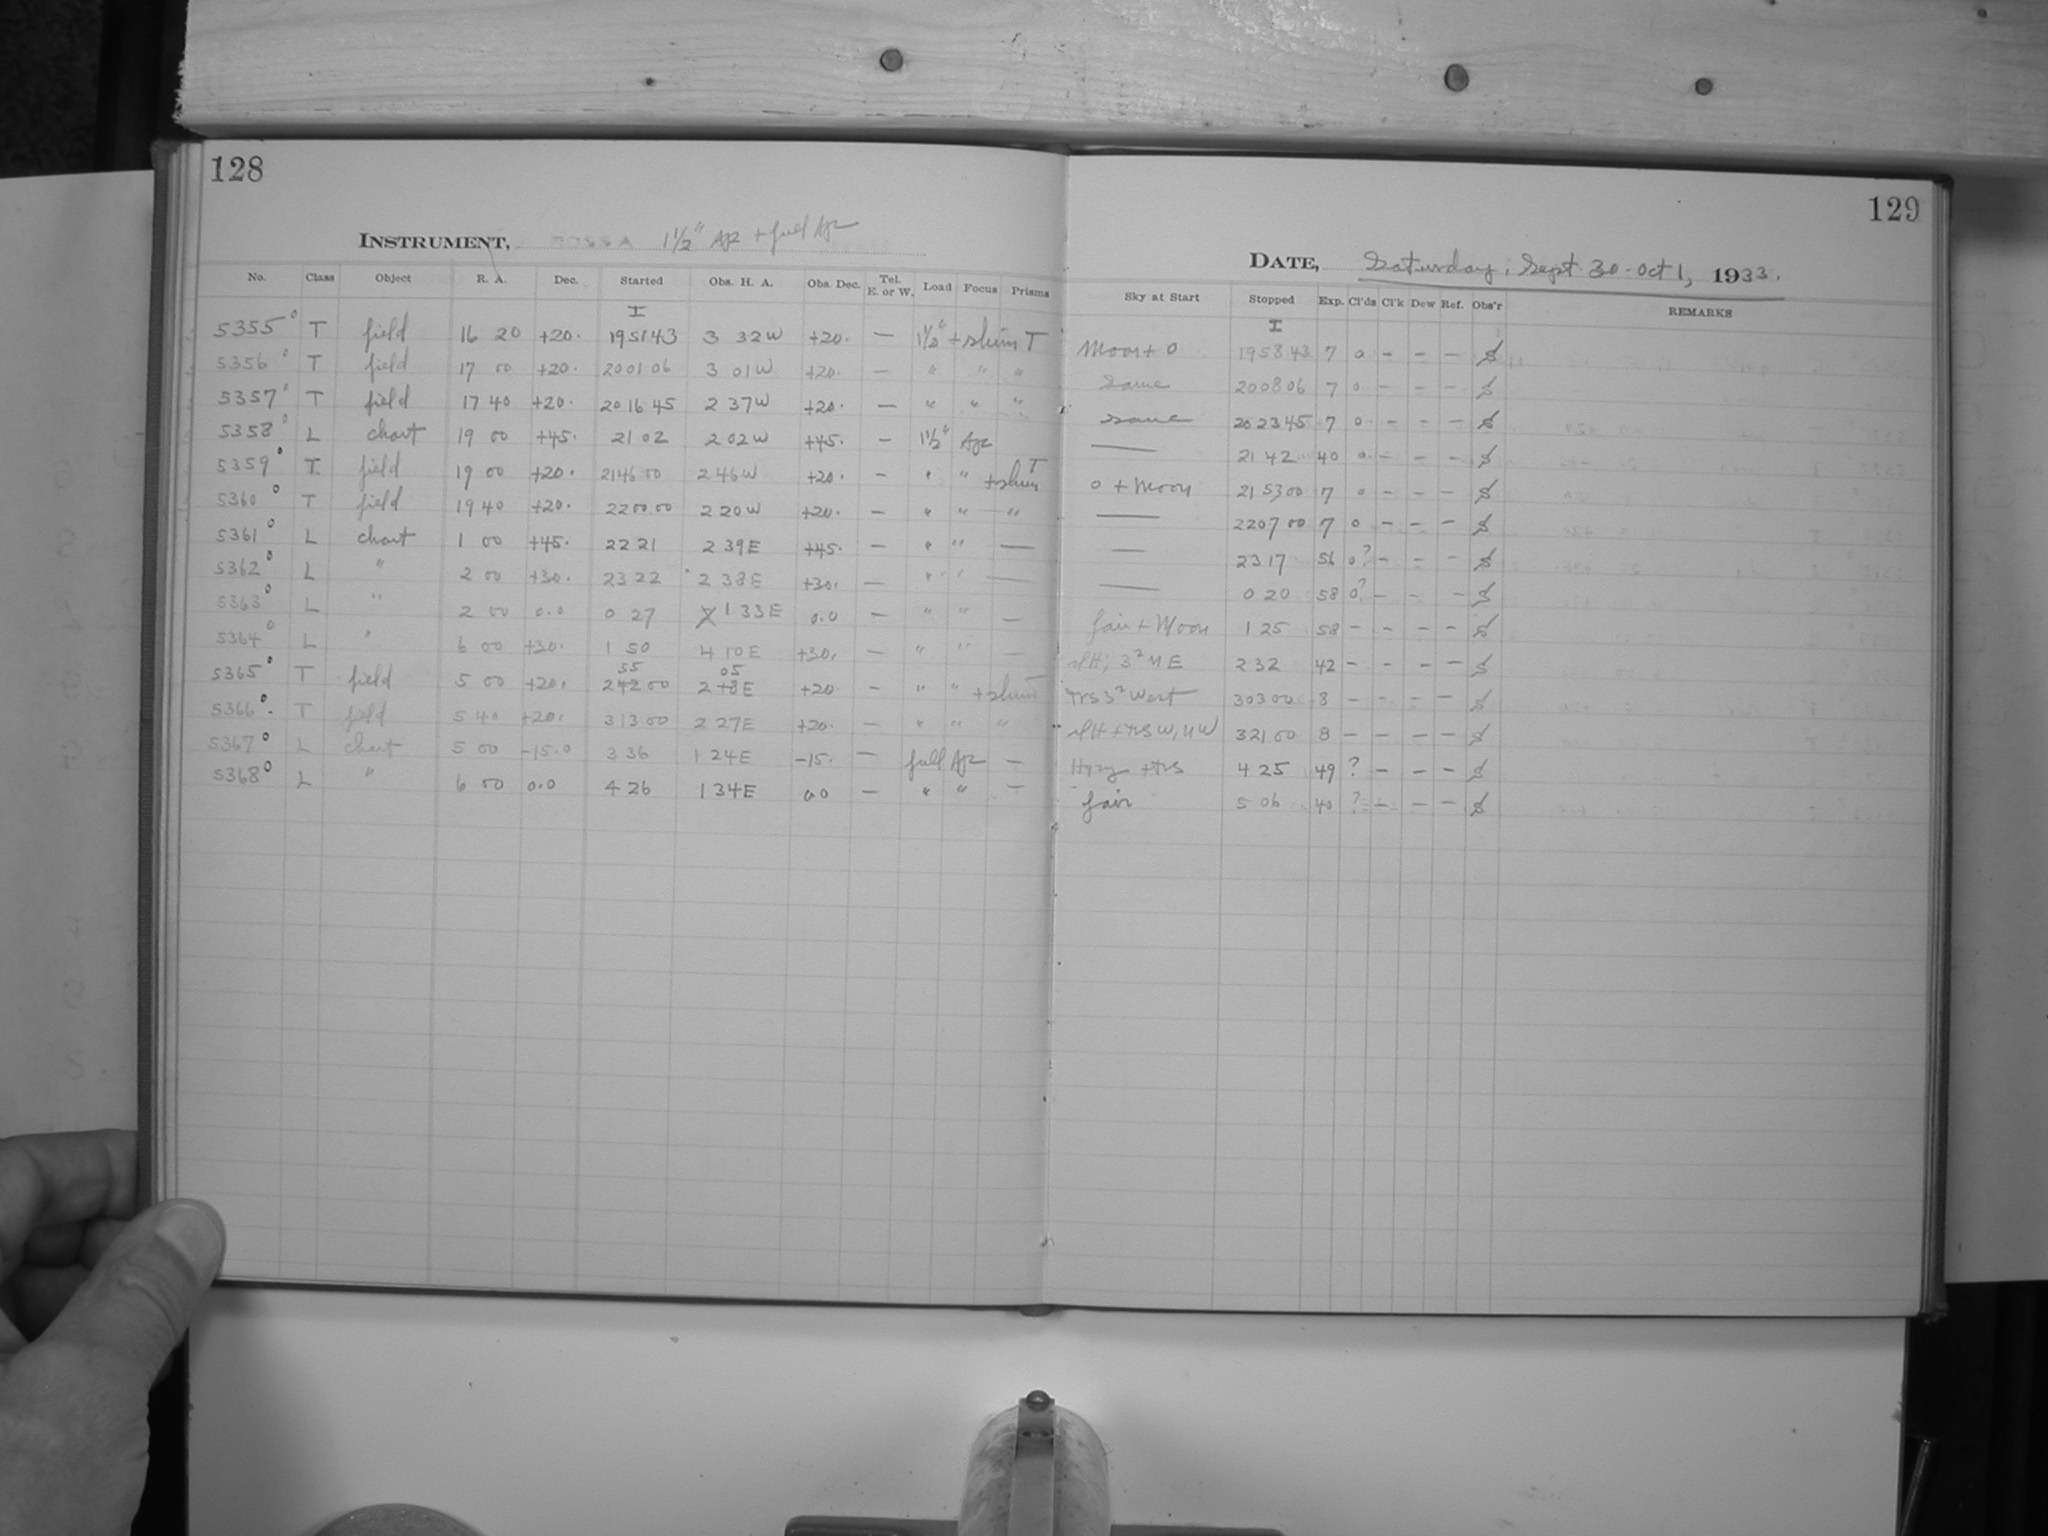 128
INSTRUMENT, 1 1/2" Apr + full Apr
No. Class Object R. A. Dec. Started Obs. H. A. Obs. Dec. Tel. E. or W. Load Focus Prisms
I
5355° T field 16 20 +20. 195143 3 32W +20. — 1 1/2" + shim T
5356° T field 17 00 +20. 200106 3 01W +20. — " " "
5357° T field 17 40 +20. 201645 2 37W +20. — " " "
5358° L chart 19 00 +45. 21 02 2 02W +45. — 1 1/2" Apr
5359° T field 19 00 +20. 214600 2 46W +20. — " " + shim T
5360° T field 19 40 +20. 220000 2 20W +20. — " " — "
5361° L chart 1 00 +45. 22 21 2 39E +45. — " " —
5362° L " 2 00 +30. 23 22 2 38E +30. — " " —
5363° L " 2 00 0.0 0 27 1 33E 0.0 — " " —
5364° L " 6 00 +30. 1 50 4 10E +30. — " " —
5365° T field 5 00 +20. 2 55 00 2 05E +20. — " " + shim T
5366° T field 5 40 +20. 31300 2 27E +20. — " " "
5367° L chart 5 00 -15.0 3 36 1 24E -15. — full Apr —
5368° L " 6 00 0.0 4 26 1 34E 00 — " " —
129
DATE, Saturday, Sept. 30 - Oct 1, 1933.
Sky at Start Stopped Exp. Cl'ds Cl'k Dew Ref. Obs'r REMARKS
I
Moon + 0 195843 7 0 - - - S
Same 200806 7 0 - - - S
same 202345 7 0 - - - S
— 21 42 40 0 - - - S
0 + Moon 215300 7 0 - - - S
— 220700 7 0 - - - S
— 23 17 56 0? - - - S
— 0 20 58 0? - - - S
fair + Moon 1 25 58 - - - - S
3² NE 2 32 42 - - - - S
trs 3² West 30300 8 - - - - S
+ trs W, NW 32100 8 - - - - S
Hazy + trs 4 25 49 ? - - - S
fair 5 06 40 ? - - - S